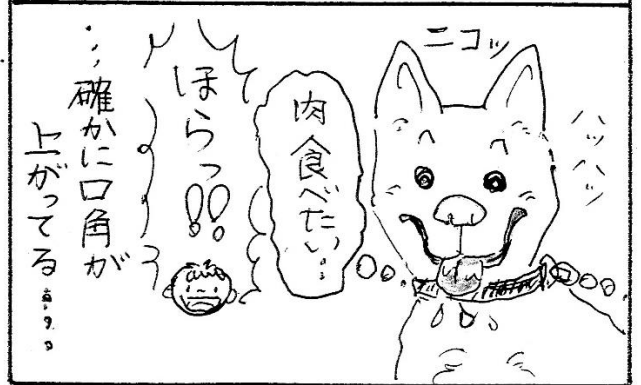 ニコッ
ハッ
ハッ
肉食べたい…
ほらっ!!
…確かに口角が
上がってる……